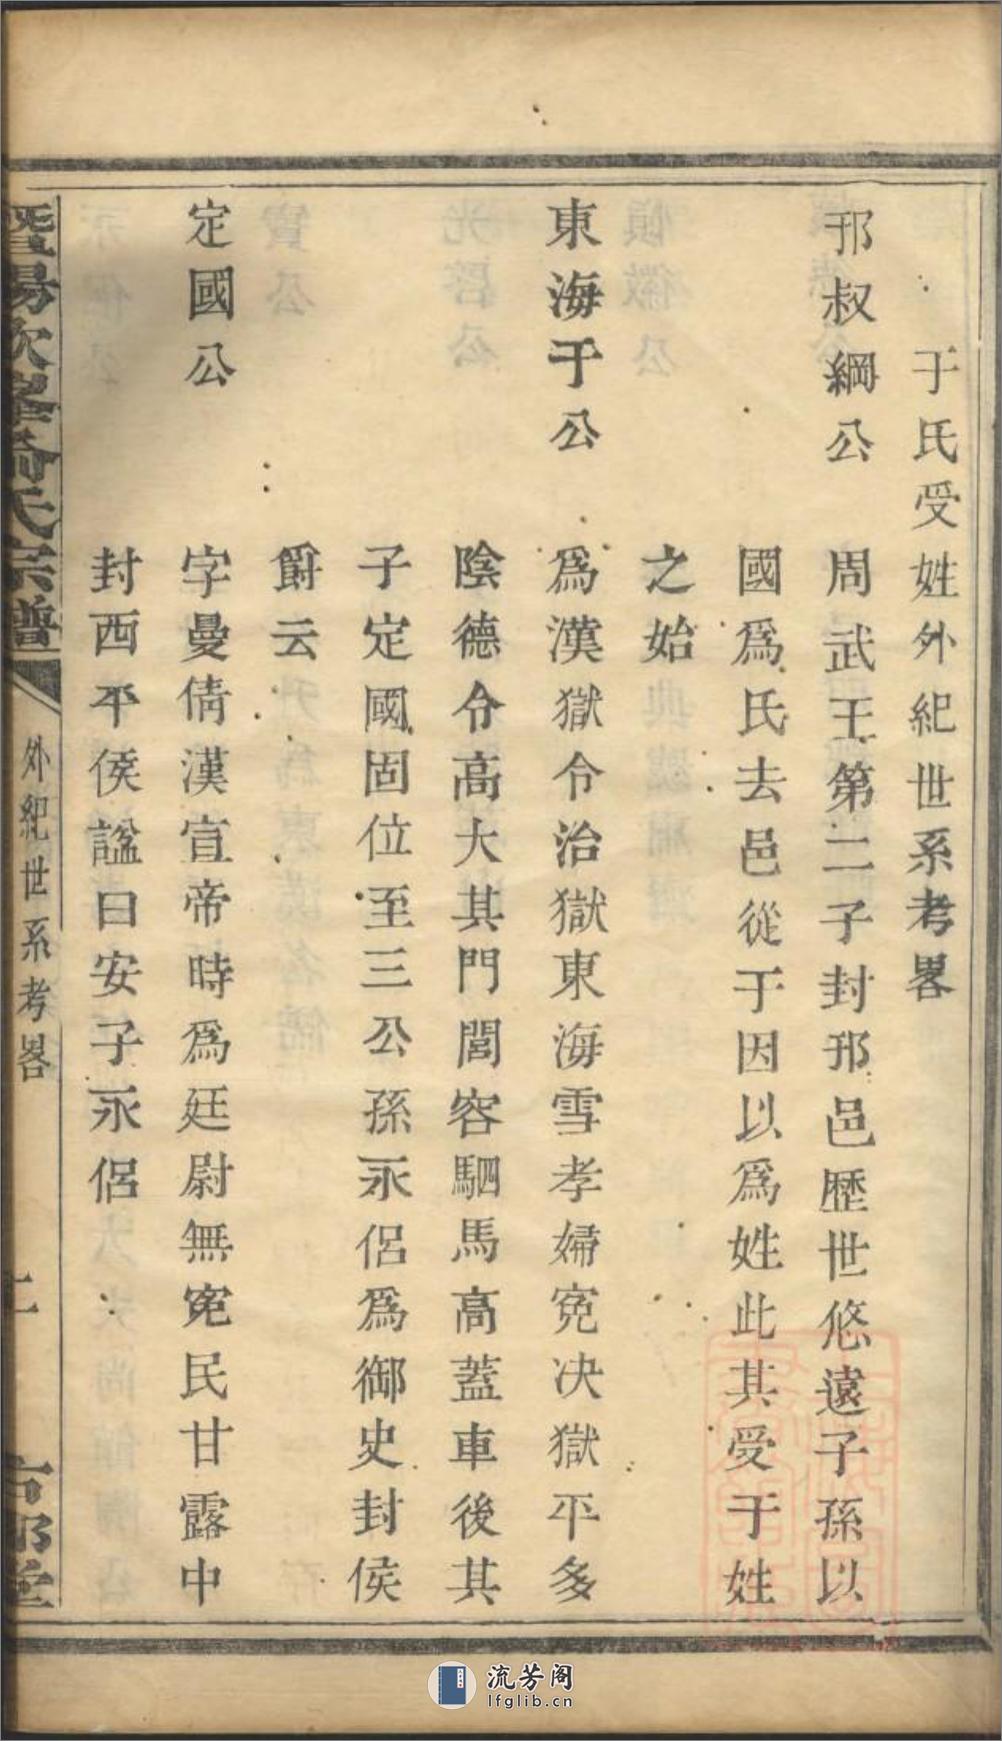 于氏受姓外紀世系考畧
邘叔綱公
周武王第二子封邘邑歷世悠遠子孫以
國爲氏去邑從于因以爲姓此其受于姓
之始
東海于公
爲漢獄令治獄東海雪孝婦寃决獄平多
陰德令高大其門閭容駟馬高蓋車後其
子定國固位至三公孫永侶爲御史封侯
爵云
定國公
字曼倩漢宣帝時爲廷尉無寃民甘露中
封西平侯諡曰安子永侶
氏宗譜
外紀世系考畧
流芳阁
lfglib.cn